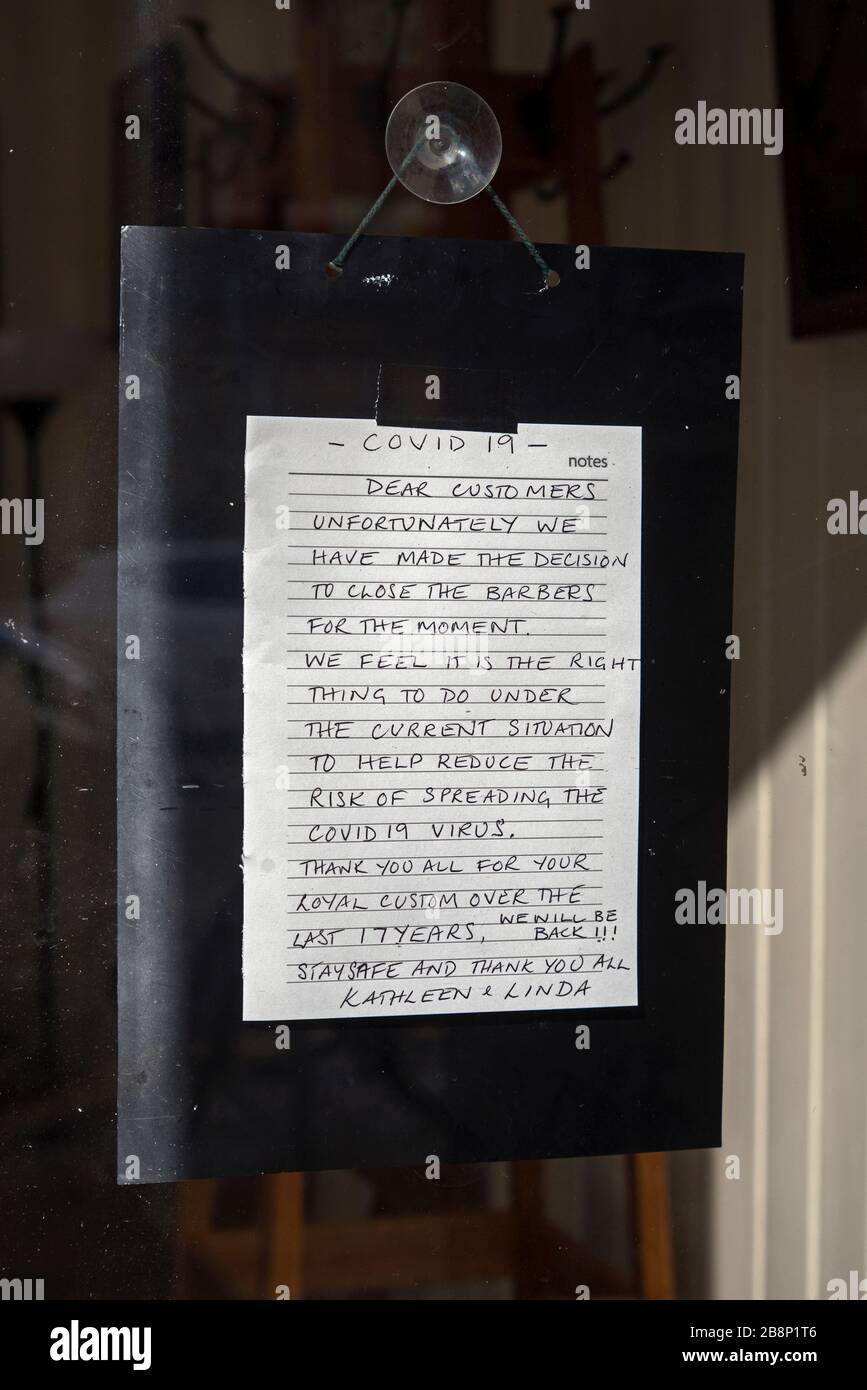 - COVID 19 -
notes
DEAR CUSTOMERS
UNFORTUNATELY WE
HAVE MADE THE DECISION
TO CLOSE THE BARBERS
FOR THE MOMENT.
WE FEEL IT IS THE RIGHT
THING TO DO UNDER
THE CURRENT SITUATION
TO HELP REDUCE THE
RISK OF SPREADING THE
COVID 19 VIRUS.
THANK YOU ALL FOR YOUR
LOYAL CUSTOM OVER THE
LAST 17 YEARS, WE WILL BE BACK !!!
STAY SAFE AND THANK YOU ALL
KATHLEEN & LINDA
alamy
alamy
Image ID: 2B8P1T6
www.alamy.com